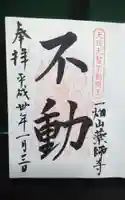 一畑山薬師寺
不動
奉拝 平成卅年一月三日